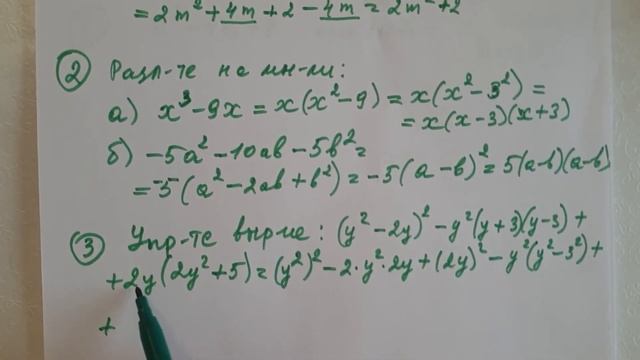 = 2m² + 4m + 2 - 4m = 2m² + 2
② Разл-те на мн-ли:
а) x³ - 9x = x(x² - 9) = x(x² - 3²) =
= x(x - 3)(x + 3)
б) -5a² - 10ab - 5b² =
= -5(a² - 2ab + b²) = -5(a - b)² = 5(a-b)(a-b)
③ Упр-те выр-ие: (y² - 2y)² - y²(y + 3)(y - 3) +
+ 2y(2y² + 5) = (y²)² - 2·y²·2y + (2y)² - y²(y² - 3²) +
+